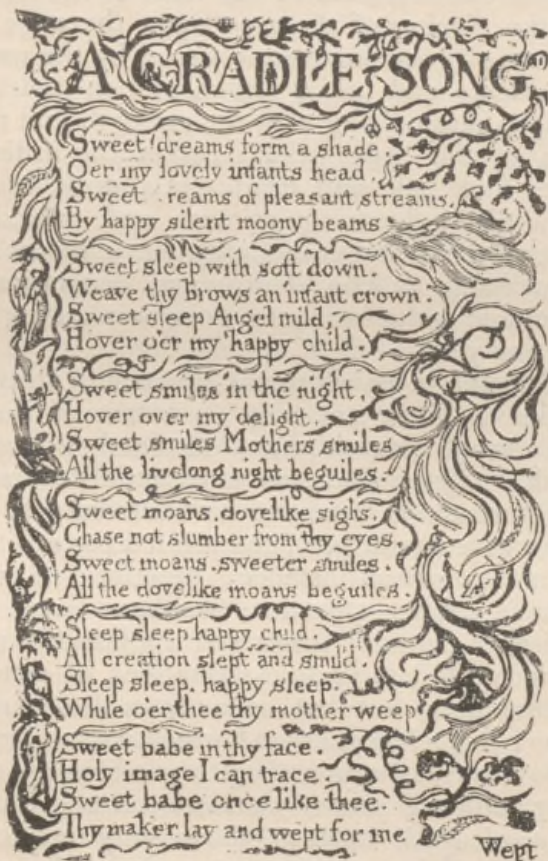 A CRADLE SONG
Sweet dreams form a shade.
O'er my lovely infants head.
Sweet reams of pleasant streams.
By happy silent moony beams
Sweet sleep with soft down.
Weave thy brows an infant crown.
Sweet sleep Angel mild,
Hover o'er my happy child.
Sweet smiles in the night,
Hover over my delight.
Sweet smiles Mothers smiles
All the livelong night beguiles.
Sweet moans, dovelike sighs,
Chase not slumber from thy eyes.
Sweet moans, sweeter smiles.
All the dovelike moans beguiles.
Sleep sleep happy child.
All creation slept and smil'd.
Sleep sleep, happy sleep.
While o'er thee thy mother weep
Sweet babe in thy face.
Holy image I can trace.
Sweet babe once like thee.
Thy maker lay and wept for me
Wept